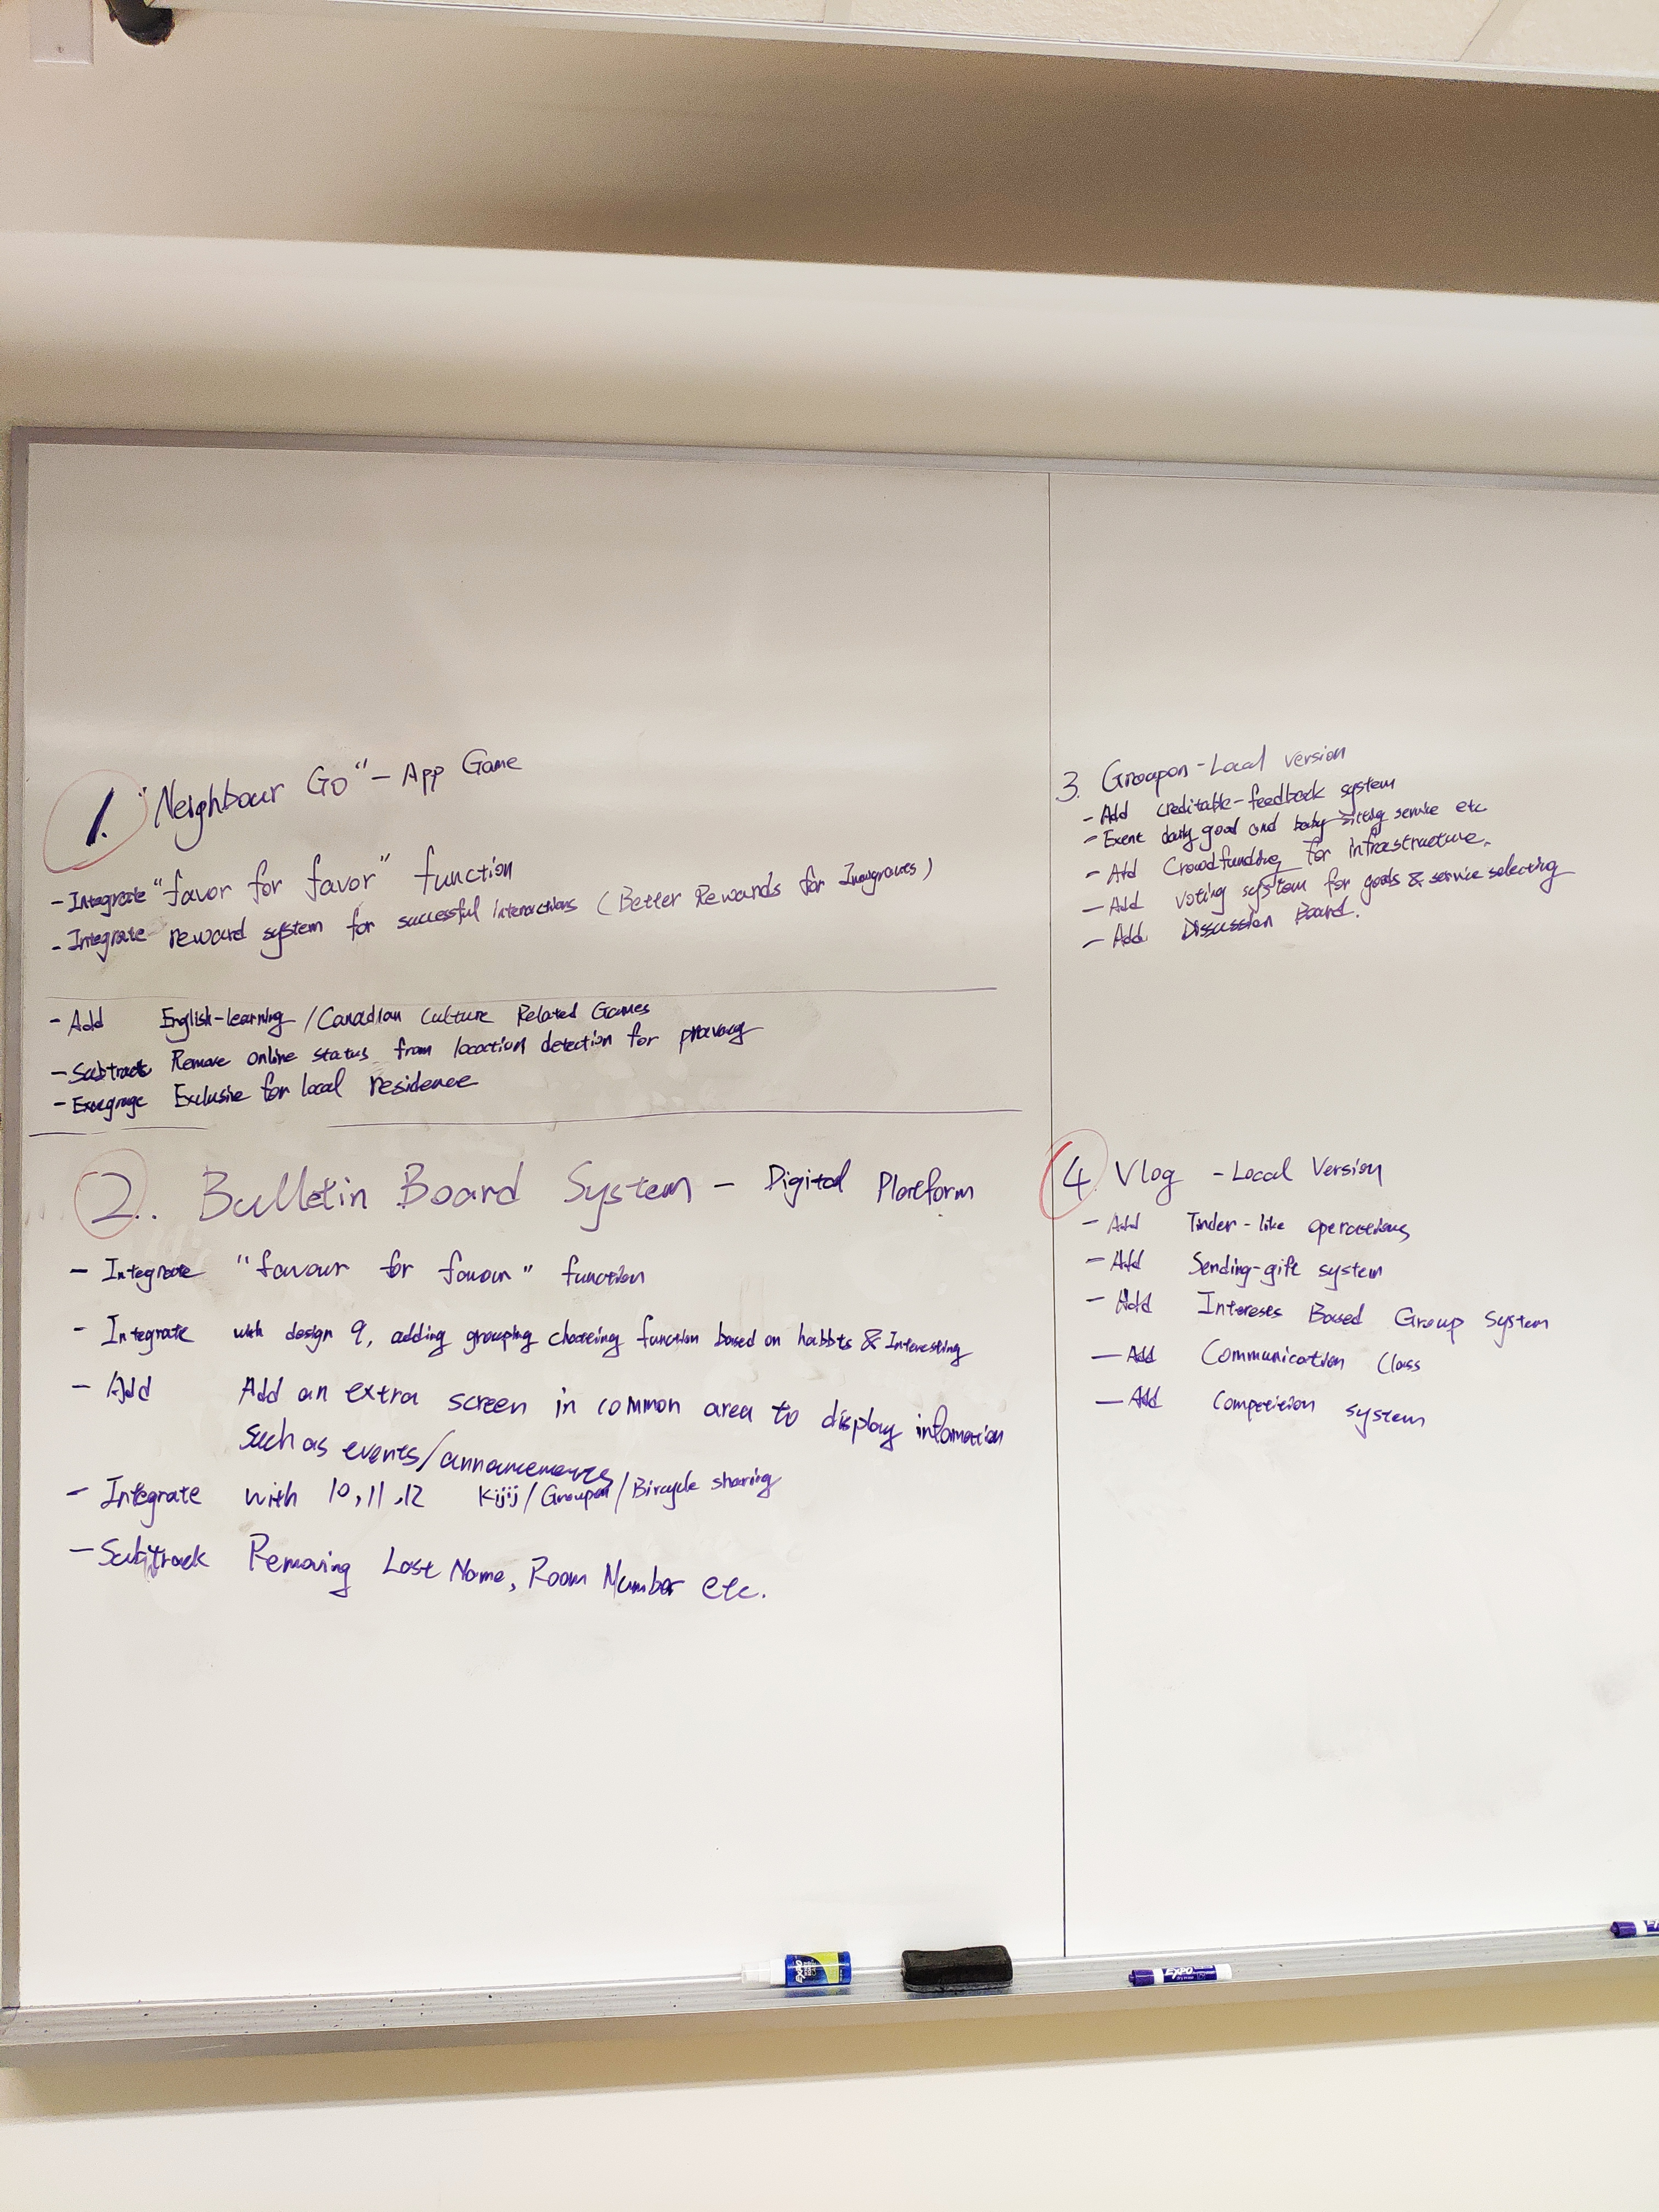 1. "Neighbour Go" - App Game
- Integrate "favor for favor" function
- Integrate reward system for successful interactions (Better Rewards for
- Add English-learning / Canadian Culture Related Games
- Subtract Remove online status from location detection for
- Exclusive for local residence
2. Bulletin Board System - Digital Platform
- Integrate "favour for favour" function
- Integrate with design 9, adding grouping function based on habbts & Interesting
- Add Add an extra screen in common area to display infomation
such as events/announcements
- Integrate with 10, 11, 12 Kijij / Groupon / Bircycle sharing
- Subtrack Removing Last Name, Room Number etc.
3. Groupon - Local version
- Add creditable-feedback system
- daily good and baby-sitting service etc
- Add Crowdfunding for infrastructure.
- Add voting system for goods & service selecting
- Add Discussion Board.
4. Vlog - Local Version
- Add Tinder-like operations
- Add Sending-gift system
- Add Based Group System
- Add Communication Class
- Add Competition system
EXPO
EXPO